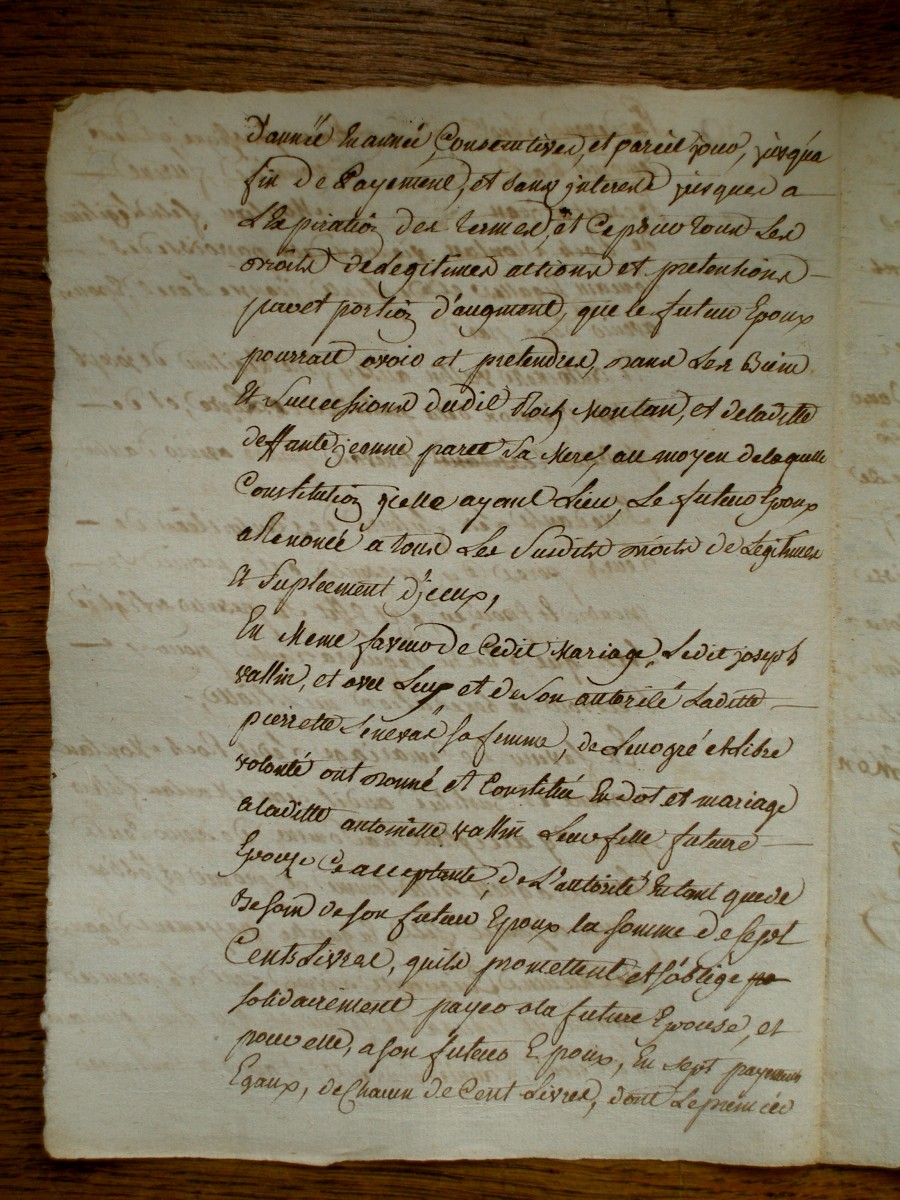 d'année En année, Consecutives, et pareil jour, jusqu'a
fin de Payement, et sans interest jusques a
L'Expiration des termes, et Ce pour tous Les
droits de legitimes actions et pretentions
part et portion d'augment, que le futur Epoux
pourrait avoir et pretendres, dans Les Biens
Et Successions dudit Roch Montan, et de laditte
deffante jeanne Sa Mere, au moyen de laquelle
Constitution icelle ayant Lieu, Le futur Epoux
a Renoncé a tous Les Susdits droits de Legitimes
Et Suplement d'iceux,
En Meme faveur de Cedit Mariage, Ledit joseph
vallin, et avec Luy et de Son autorité Laditte
pierrette sa femme, de Leur gré et Libre
volonté ont donné et Constitué En dot et mariage
a laditte antoinette vallin Leur fille future
Epouze Ce acceptante, de L'autorité En tant que de
Besoin de son futur Epoux la somme de sept
Cents Livres, quils promettent et s'oblige
solidairement payer a la future Epouse, et
pour elle, a son futur Epoux, En sept payements
Egaux, de Chacun de Cent Livres, dont Le premier